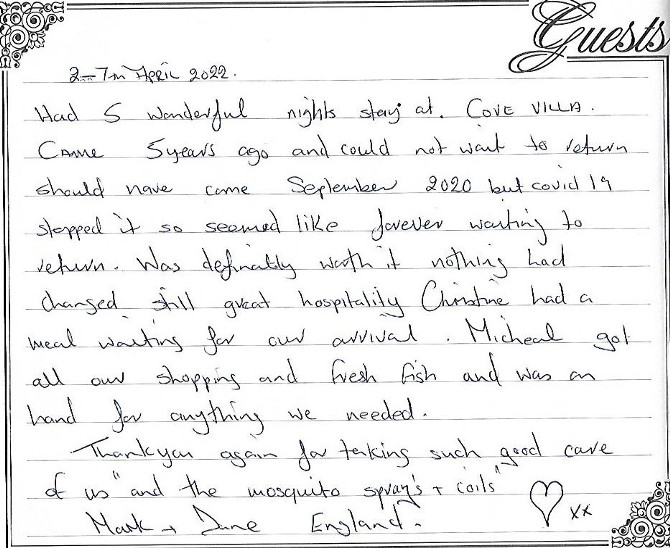 Guests
2-7th April 2022.
Had 5 wonderful nights stay at. COVE VILLA.
Came 5years ago and could not wait to return
should have come September 2020 but covid 19
stopped it so seemed like forever waiting to
return. Was definatly worth it nothing had
changed still great hospitality Christine had a
meal waiting for our arrival. Micheal got
all our shopping and fresh fish and was on
hand for anything we needed.
Thankyou again for taking such good care
of us "and the mosquito spray's + coils"
Mark + June England. xx